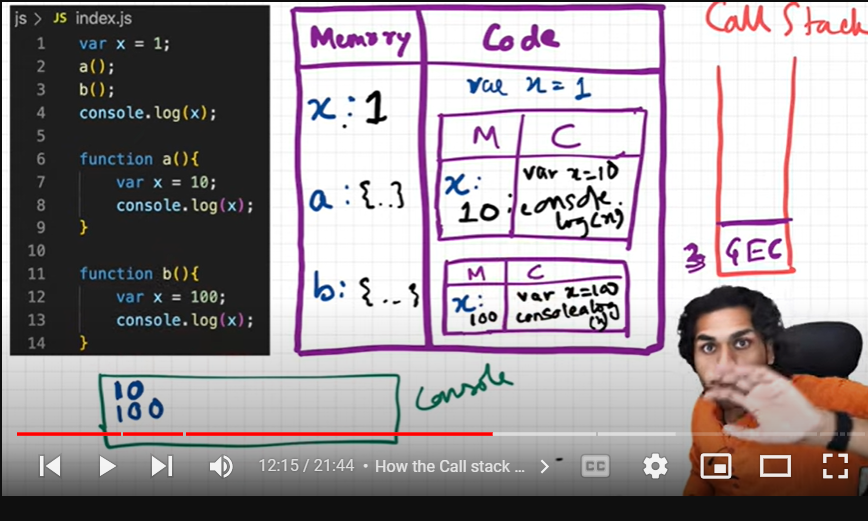 js > JS index.js
1 var x = 1;
2 a();
3 b();
4 console.log(x);
5
6 function a(){
7 var x = 10;
8 console.log(x);
9 }
10
11 function b(){
12 var x = 100;
13 console.log(x);
14 }
Memory
Code
x: 1
a: {..}
b: {...}
var x = 1
M C
x:
10
var x=10
console.
log(x)
M C
x:
100
var x=100
console.log
(x)
Call Stack
GEC
10
100
Console
12:15 / 21:44 • How the Call stack ...
CC